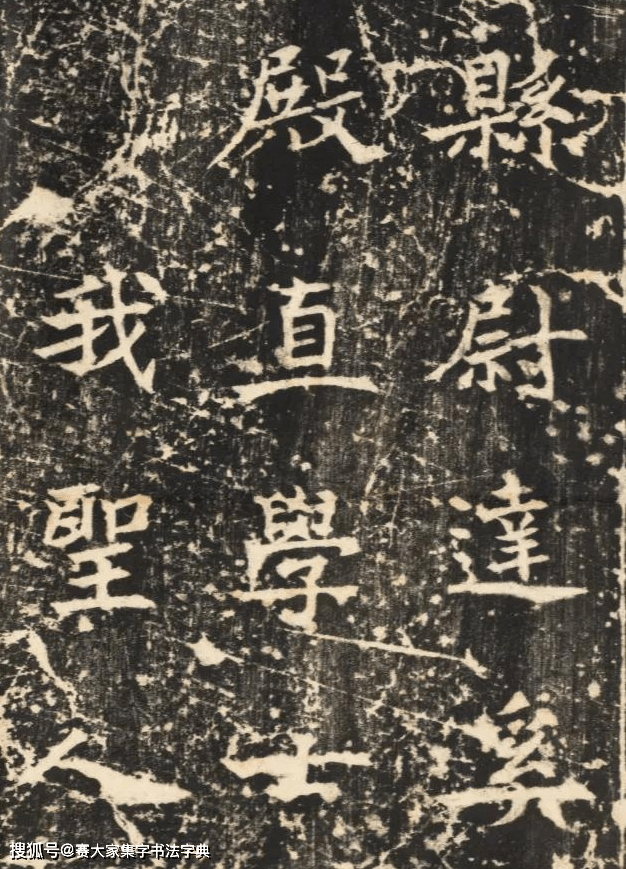 縣尉達奚
殿直學士
我聖人
搜狐号@赛大家集字书法字典